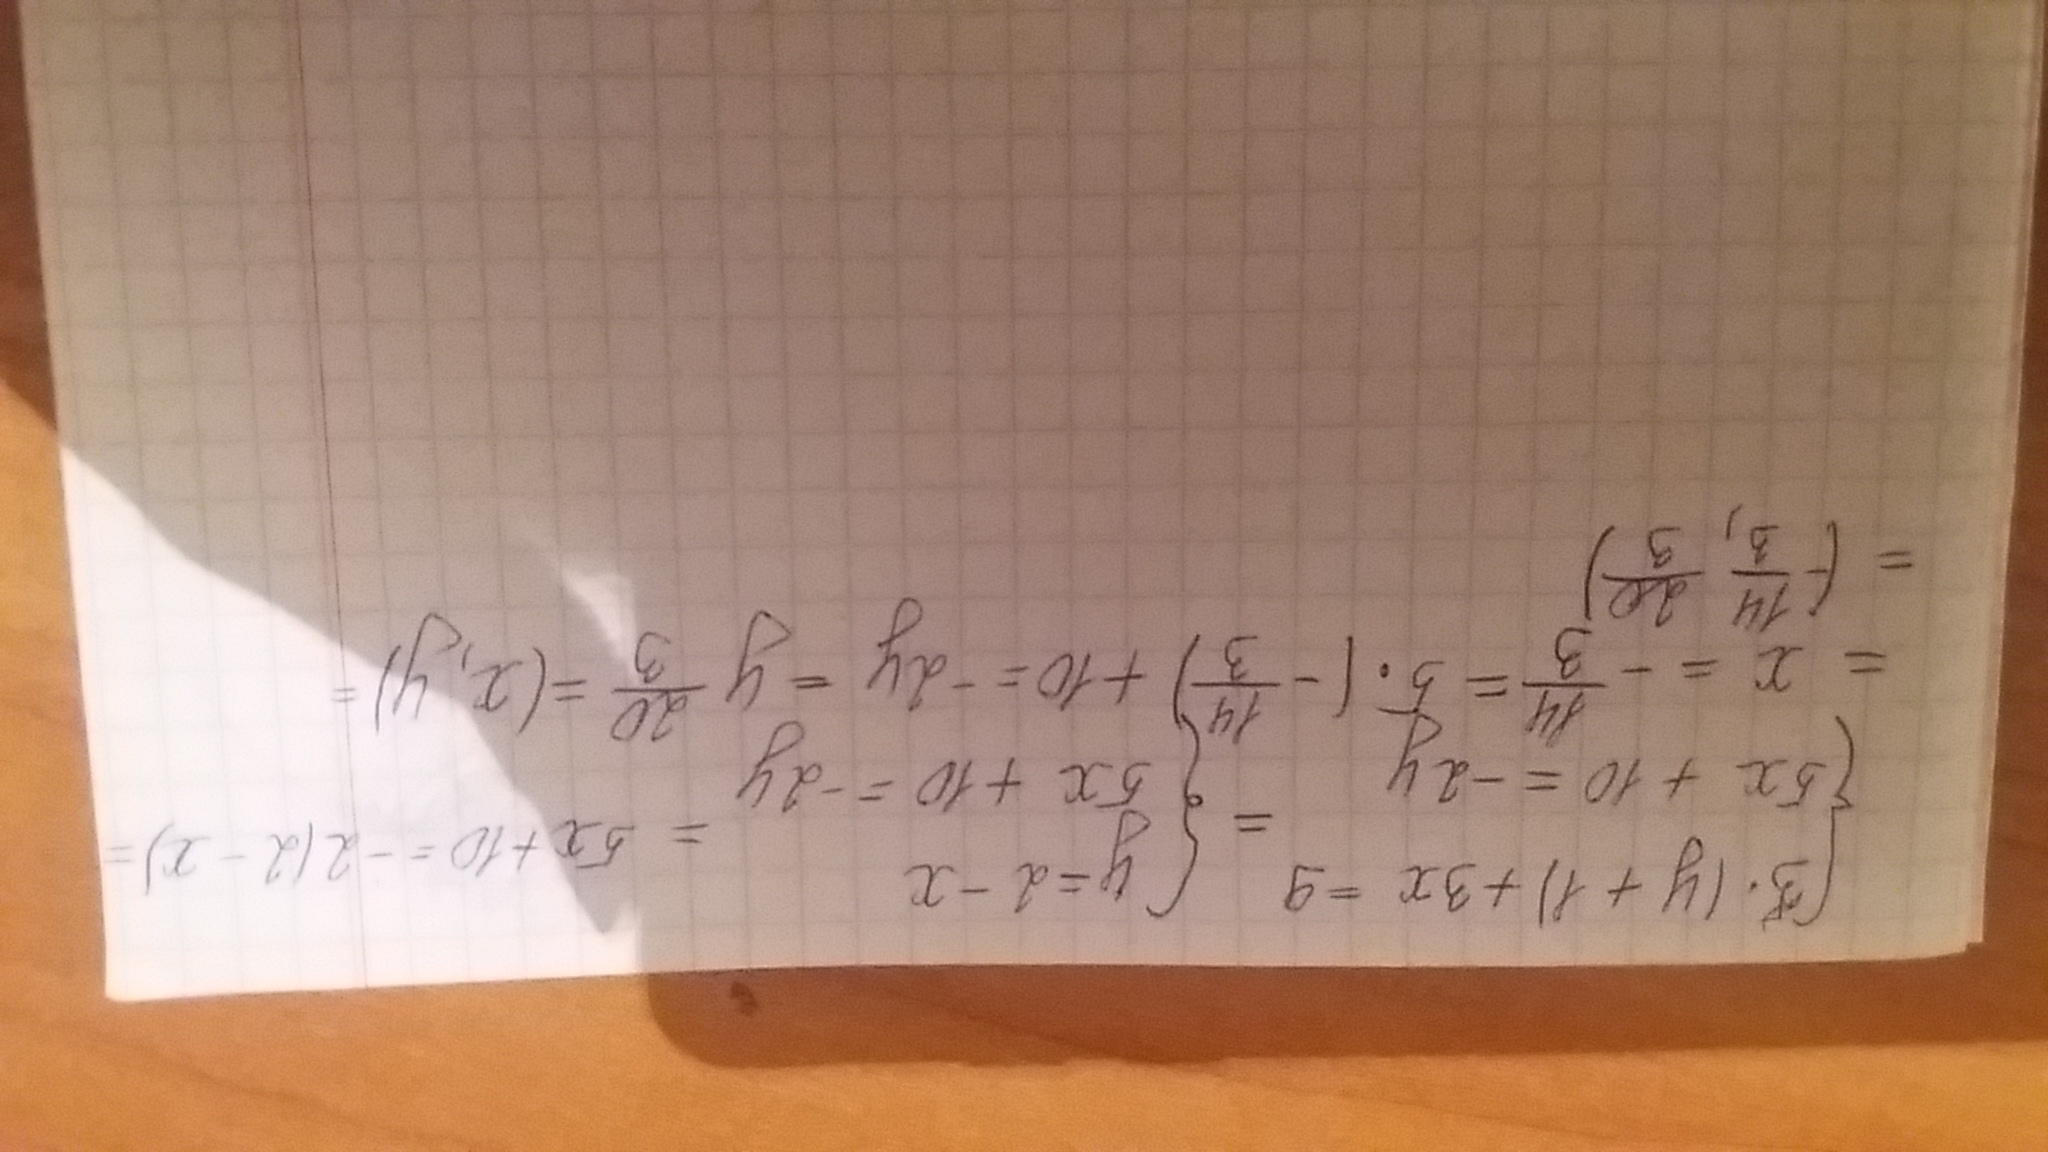 {3·(y + 1) + 3x = 9 = {y = 2 - x = 5x + 10 = -2(2 - x) =
{5x + 10 = -2y {5x + 10 = -2y
= x = -14/3 = 5·(-14/3) + 10 = -2y = y 20/3 = (x, y) =
= (-14/3, 20/3)